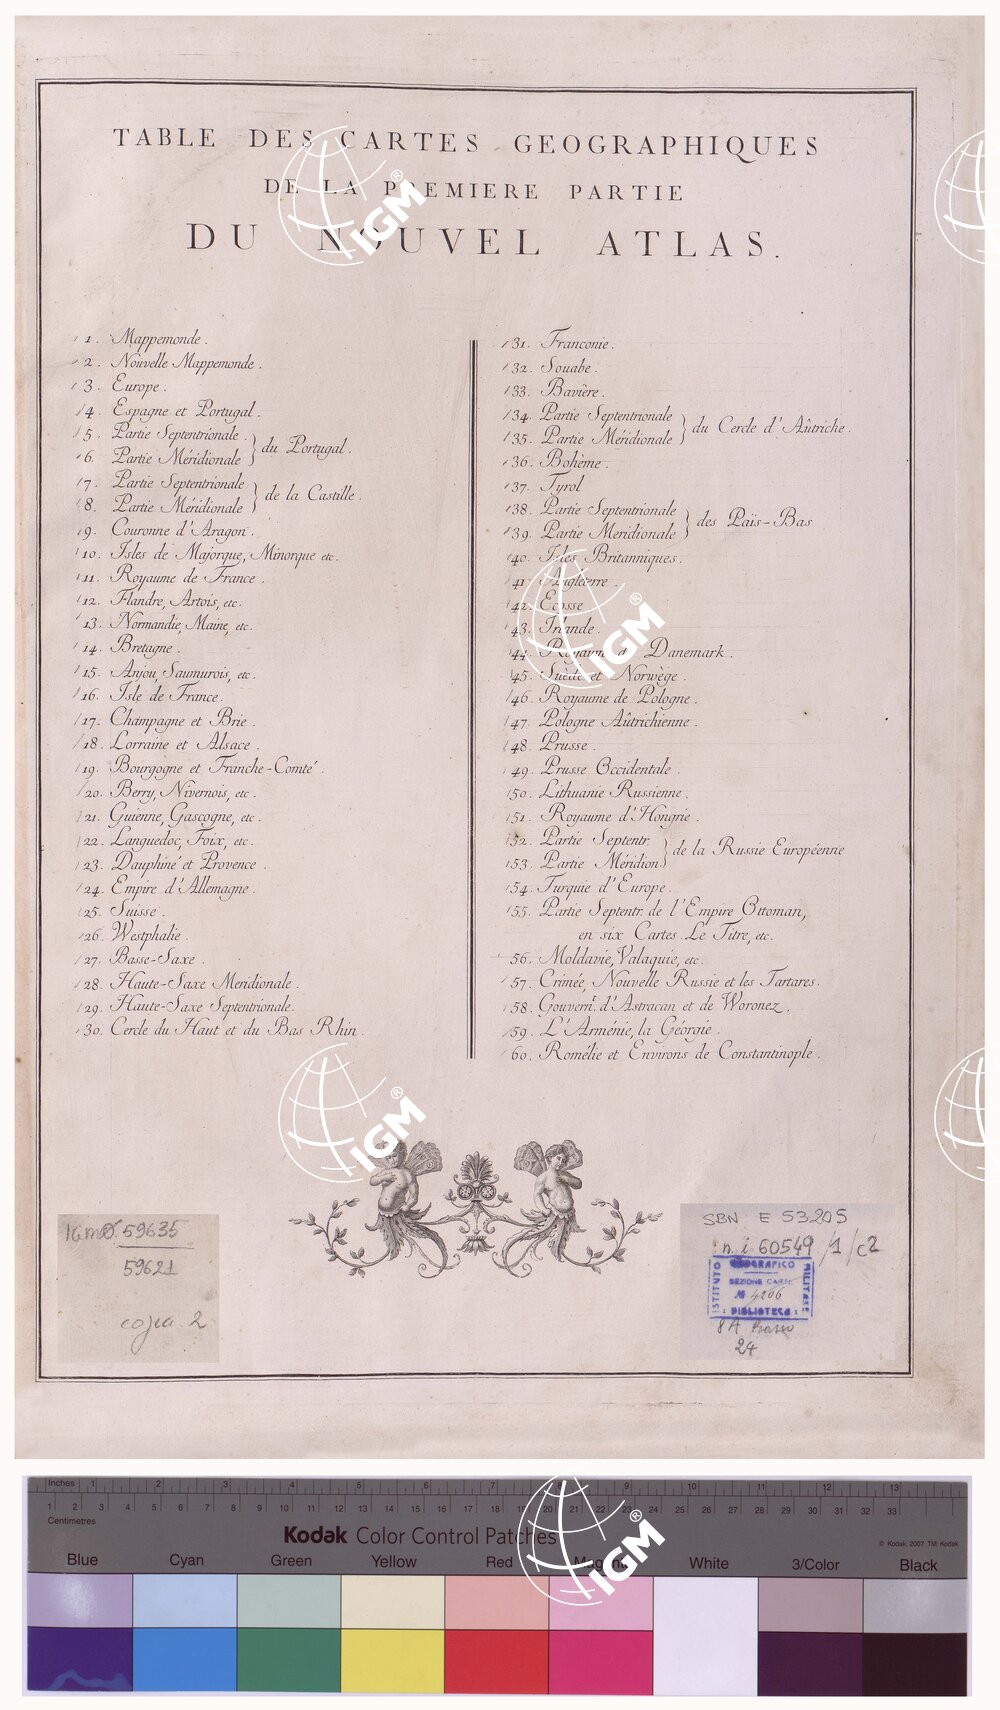 TABLE DES CARTES GEOGRAPHIQUES
DE LA PREMIERE PARTIE
DU NOUVEL ATLAS.
1. Mappemonde.
2. Nouvelle Mappemonde.
3. Europe.
4. Espagne et Portugal.
5. Partie Septentrionale.
6. Partie Méridionale } du Portugal.
7. Partie Septentrionale
8. Partie Méridionale } de la Castille.
9. Couronne d'Aragon.
10. Isles de Majorque, Minorque etc.
11. Royaume de France.
12. Flandre, Artois, etc.
13. Normandie, Maine, etc.
14. Bretagne.
15. Anjou, Saumurois, etc.
16. Isle de France.
17. Champagne et Brie.
18. Lorraine et Alsace.
19. Bourgogne et Franche-Comté.
20. Berry, Nivernois, etc.
21. Guienne, Gascogne, etc.
22. Languedoc, Foix, etc.
23. Dauphiné et Provence.
24. Empire d'Allemagne.
25. Suisse.
26. Westphalie.
27. Basse-Saxe.
28. Haute-Saxe Meridionale.
29. Haute-Saxe Septentrionale.
30. Cercle du Haut et du Bas Rhin.
31. Franconie.
32. Souabe.
33. Bavière.
34. Partie Septentrionale
35. Partie Méridionale } du Cercle d'Aûtriche.
36. Bohème.
37. Tyrol
38. Partie Septentrionale
39. Partie Meridionale } des Païs-Bas
40. Isles Britanniques.
41. Angleterre.
42. Ecosse
43. Irlande.
44. Royaume de Danemark.
45. Suède et Norwège.
46. Royaume de Pologne.
47. Pologne Aûtrichienne.
48. Prusse.
49. Prusse Occidentale.
50. Lithuanie Russienne.
51. Royaume d'Hongrie.
52. Partie Septentr.
53. Partie Méridion. } de la Russie Européenne
54. Turquie d'Europe.
55. Partie Septentr. de l'Empire Ottoman,
en six Cartes. Le Titre, etc.
56. Moldavie, Valaquie, etc.
57. Crimée, Nouvelle Russie et les Tartares.
58. Gouvernt. d'Astracan et de Woronez.
59. L'Arménie, la Géorgie.
60. Romélie et Environs de Constantinople.
59635
59621
copia 2
SBN E 53205
n. i 60549/1/c2
ISTITUTO GEOGRAFICO MILITARE
SEZIONE CARTE
№ 4206
BIBLIOTECA
8 A
24
IGM®
IGM®
IGM®
IGM®
Inches 1 2 3 4 5 6 7 8 9 10 11 12 13
1 2 3 4 5 6 7 8 9 10 11 12 13 14 15 16 17 18 19 20 21 22 23 24 25 26 27 28 29 30 31 32 33
Centimetres
Kodak Color Control Patches
© Kodak, 2007 TM: Kodak
Blue Cyan Green Yellow Red Magenta White 3/Color Black